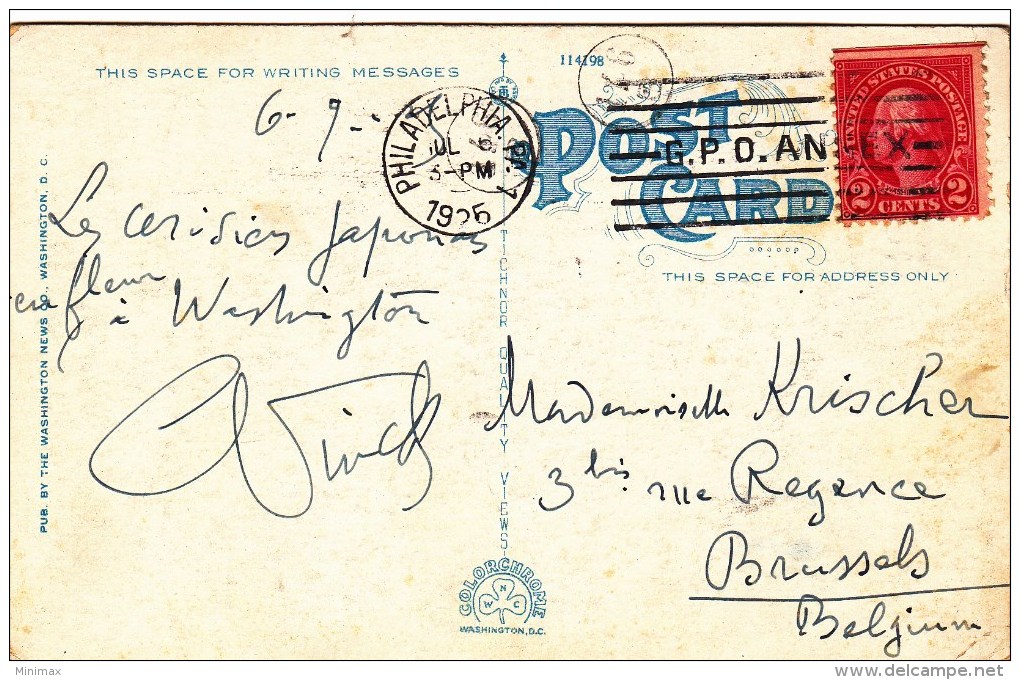 THIS SPACE FOR WRITING MESSAGES
6-7-
Les cerisiers Japonais
en fleur
à Washington
PUB. BY THE WASHINGTON NEWS CO., WASHINGTON, D. C.
TICHNOR QUALITY VIEWS
COLORCHROME
W N C
WASHINGTON, D.C.
114198
POST CARD
PHILADELPHIA, PA. 1
JUL
PM
1925
G.P.O. AN
UNITED STATES POSTAGE
WASHINGTON
2 CENTS 2
THIS SPACE FOR ADDRESS ONLY
Mademoiselle Krischer
3 bis rue Regence
Brussels
Belgium
Minimax
delcampe.net